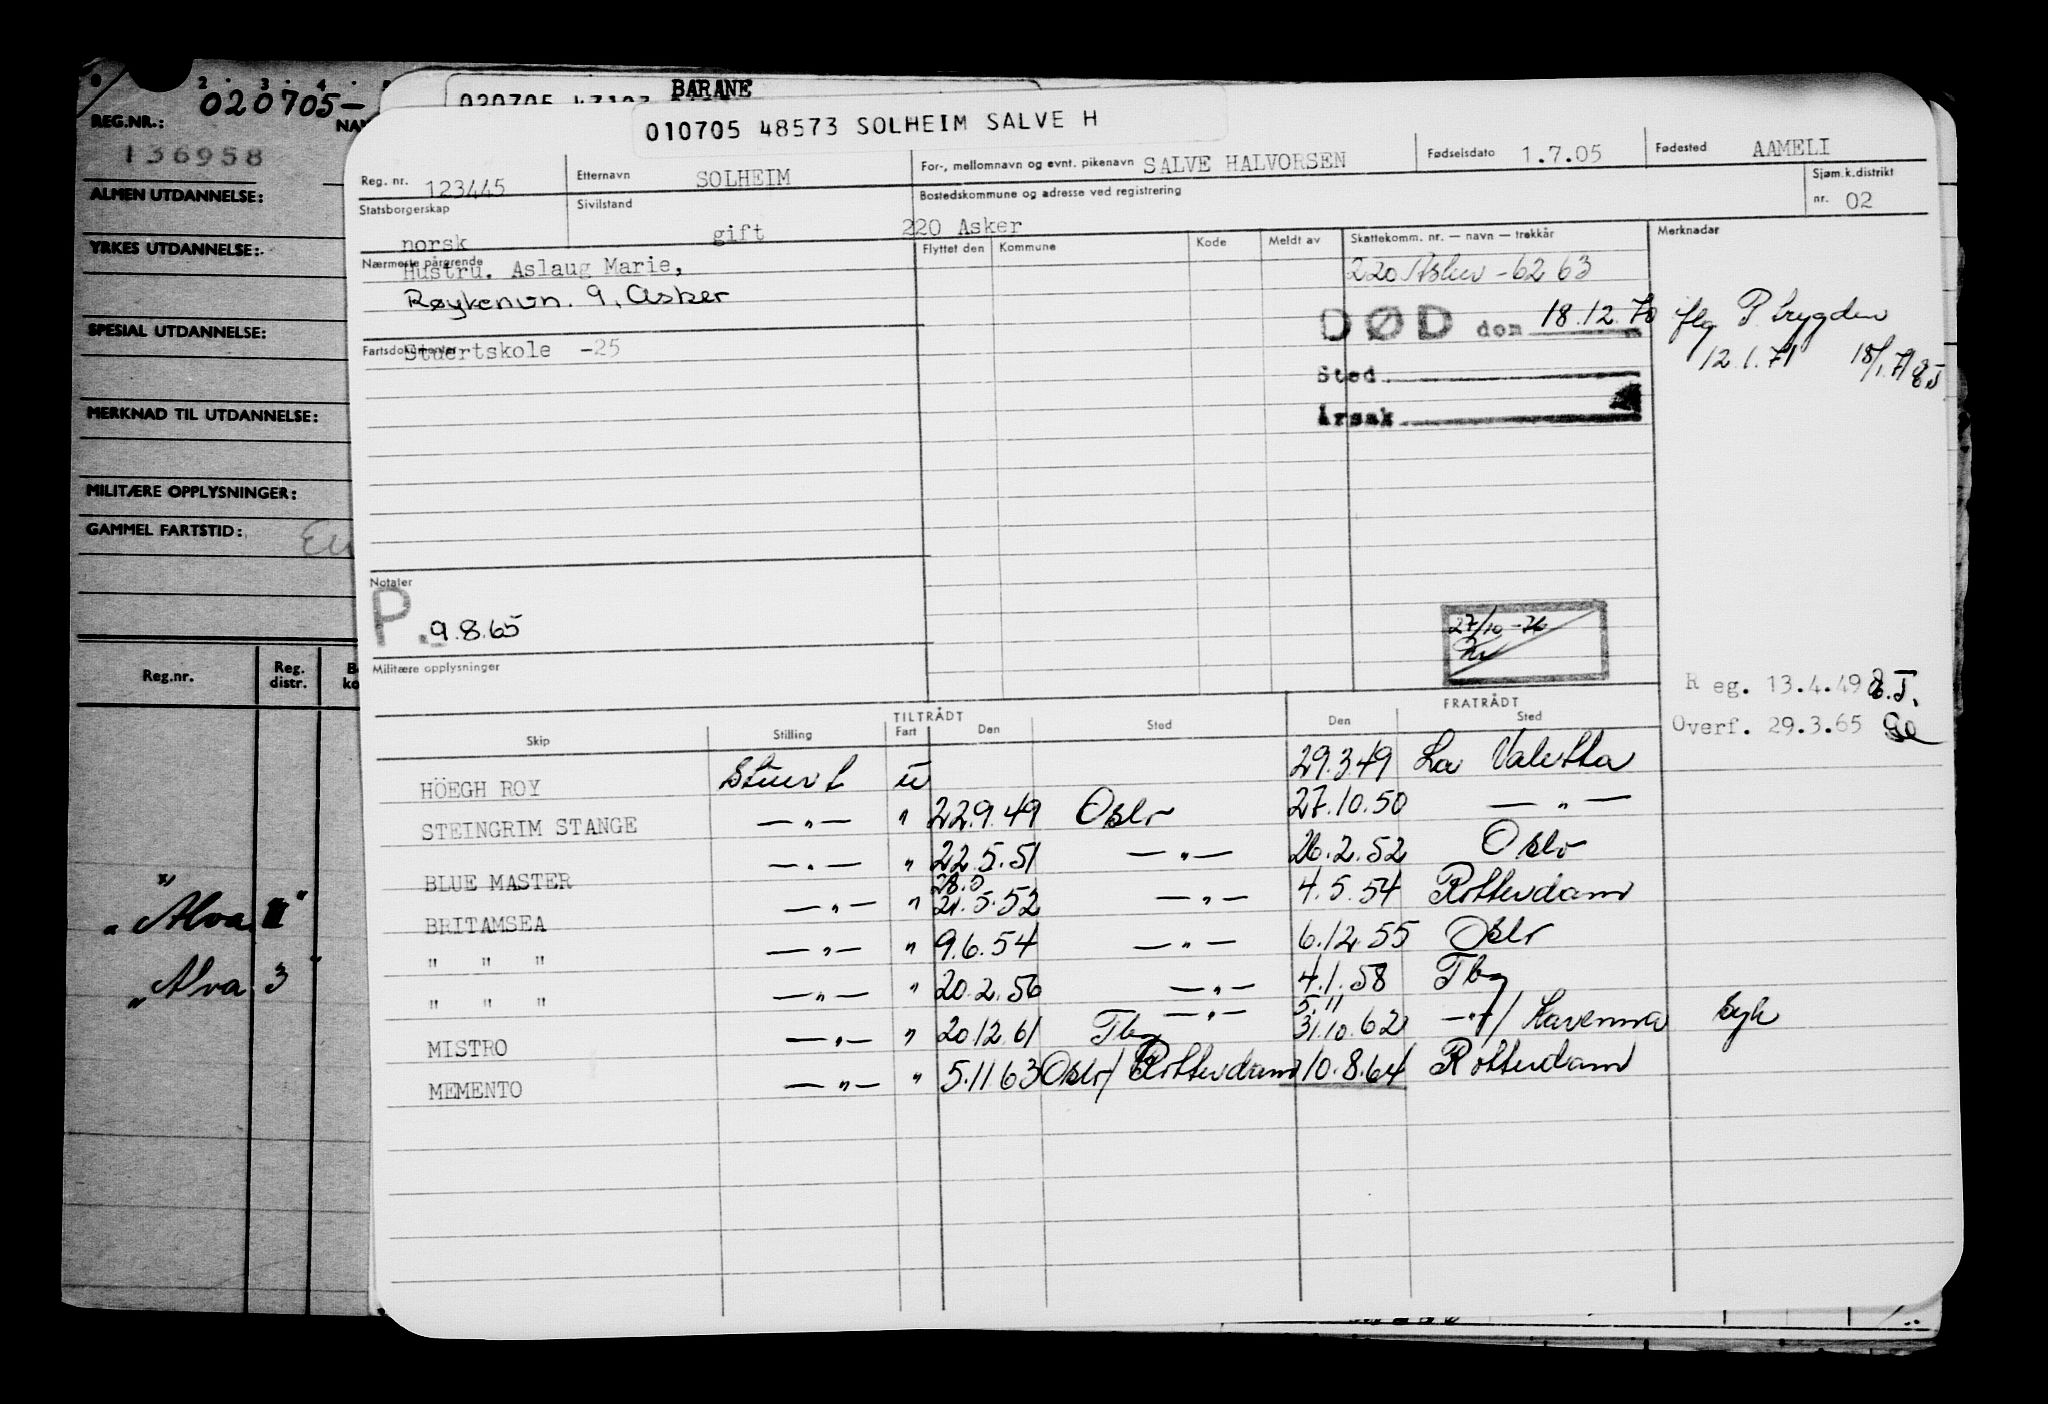 2 . 3 . 4 .
020705-
REG.NR.:
136958
ALMEN UTDANNELSE:
YRKES UTDANNELSE:
SPESIAL UTDANNELSE:
MERKNAD TIL UTDANNELSE:
MILITÆRE OPPLYSNINGER:
GAMMEL FARTSTID:
Reg.nr. Reg. distr.
"Alva II"
"Alva 3"
BARANE
010705 48573 SOLHEIM SALVE H
Reg. nr. 123445 Etternavn SOLHEIM For-, mellomnavn og evnt. pikenavn SALVE HALVORSEN Fødselsdato 1.7.05 Fødested AAMELI
Statsborgerskap norsk Sivilstand gift Bostedskommune og adresse ved registrering 220 Asker Sjøm.k.distrikt nr. 02
Nærmeste pårørende Flyttet den Kommune Kode Meldt av Skattekomm. nr. — navn — trekkår Merknader
Hustru. Aslaug Marie, 220 Asker - 62 63
Røykenvn. 9, Asker
DØD den 18.12.70 flg P. trygden
12.1.71 18/1.71
Fartsdokumenter Stuertskole -25
Sted
Årsak
Notater
P. 9.8.65
27/10-76
Militære opplysninger
Reg. 13.4.49
Overf. 29.3.65
TILTRÅDT FRATRÅDT
Skip Stilling Fart Den Sted Den Sted
HÖEGH ROY Stuert u 29.3.49 La Valetta
STEINGRIM STANGE — " — " 22.9.49 Oslo 27.10.50 — " —
BLUE MASTER — " — " 22.5.51 — " — 26.2.52 Oslo
28.5
BRITAMSEA — " — " 21.5.52 — " — 4.5.54 Rotterdam
" " " — " — " 9.6.54 — " — 6.12.55 Oslo
" " " — " — " 20.2.56 — " — 4.1.58 Tbg
— " — 5.11
MISTRO — " — " 20.12.61 Tbg 31.10.62 — " —/ Ravenna syk
MEMENTO — " — " 5.11 63 Oslo/ Rotterdam 10.8.64 Rotterdam